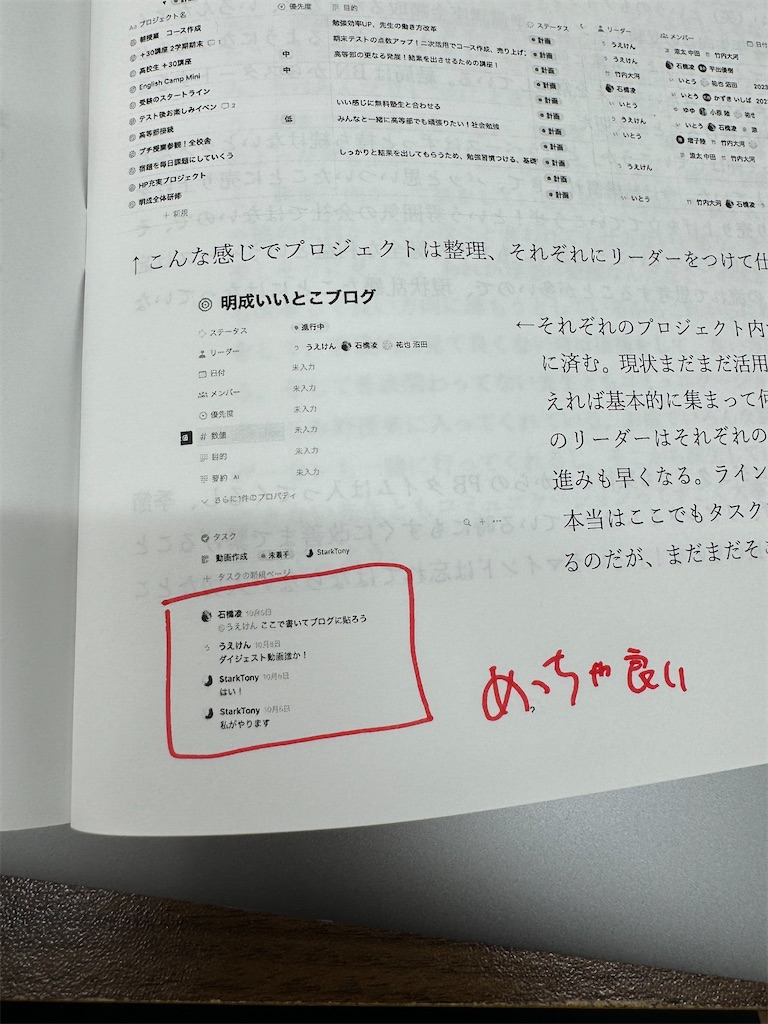 Aa プロジェクト名 優先度 目的 ステータス リーダー メンバー 日付
朝授業 コース作成 勉強効率UP、先生の働き方改革 計画 うえけん 涼太 中田 竹内大河
+30講座 2学期期末 1 期末テストの点数アップ！二次活用でコース作成、売り上げ、 計画 石橋凌 平出優樹
高校生 +30講座 中 高等部の更なる発展！結果を出させるための講座！ 計画 竹内大河 いとう 祐也 沼田 2023
English Camp Mini 中 計画 石橋凌 いとう かずき いしば 202
受験のスタートライン 計画 いとう ゆゆ 小原 陸 祐
テスト後お楽しみイベン 2 いい感じに無料塾生と合わせる 計画 うえけん いとう 石橋凌
高等部接続 低 みんなと一緒に高等部でも頑張りたい！社会勉強 計画 いとう 竹内大河
プチ授業参観！全校舎 計画 涼太 中田 竹内大河
宿題を毎日課題にしていくう しっかりと結果を出してもらうため、勉強習慣つける、基礎 計画 うえけん
HP充実プロジェクト 計画
明成全体研修 計画 いとう 竹内大河 石橋凌
+ 新規
↑こんな感じでプロジェクトは整理、それぞれにリーダーをつけて仕
明成いいとこブログ
ステータス 進行中
リーダー うえけん 石橋凌 祐也 沼田
日付 未入力
メンバー 未入力
優先度 未入力
# 数値 未入力
目的 未入力
要約 AI 未入力
さらに1件のプロパティ
←それぞれのプロジェクト内
に済む。現状まだまだ活用
えれば基本的に集まって何
のリーダーはそれぞれの
進みも早くなる。ライン
本当はここでもタスク
るのだが、まだまだそこ
タスク
動画作成 未着手 StarkTony
+ タスクの新規ページ
石橋凌 10月5日
@うえけん ここで書いてブログに貼ろう
うえけん 10月6日
ダイジェスト動画誰か！
StarkTony 10月6日
はい！
StarkTony 10月6日
私がやります
めっちゃ良い